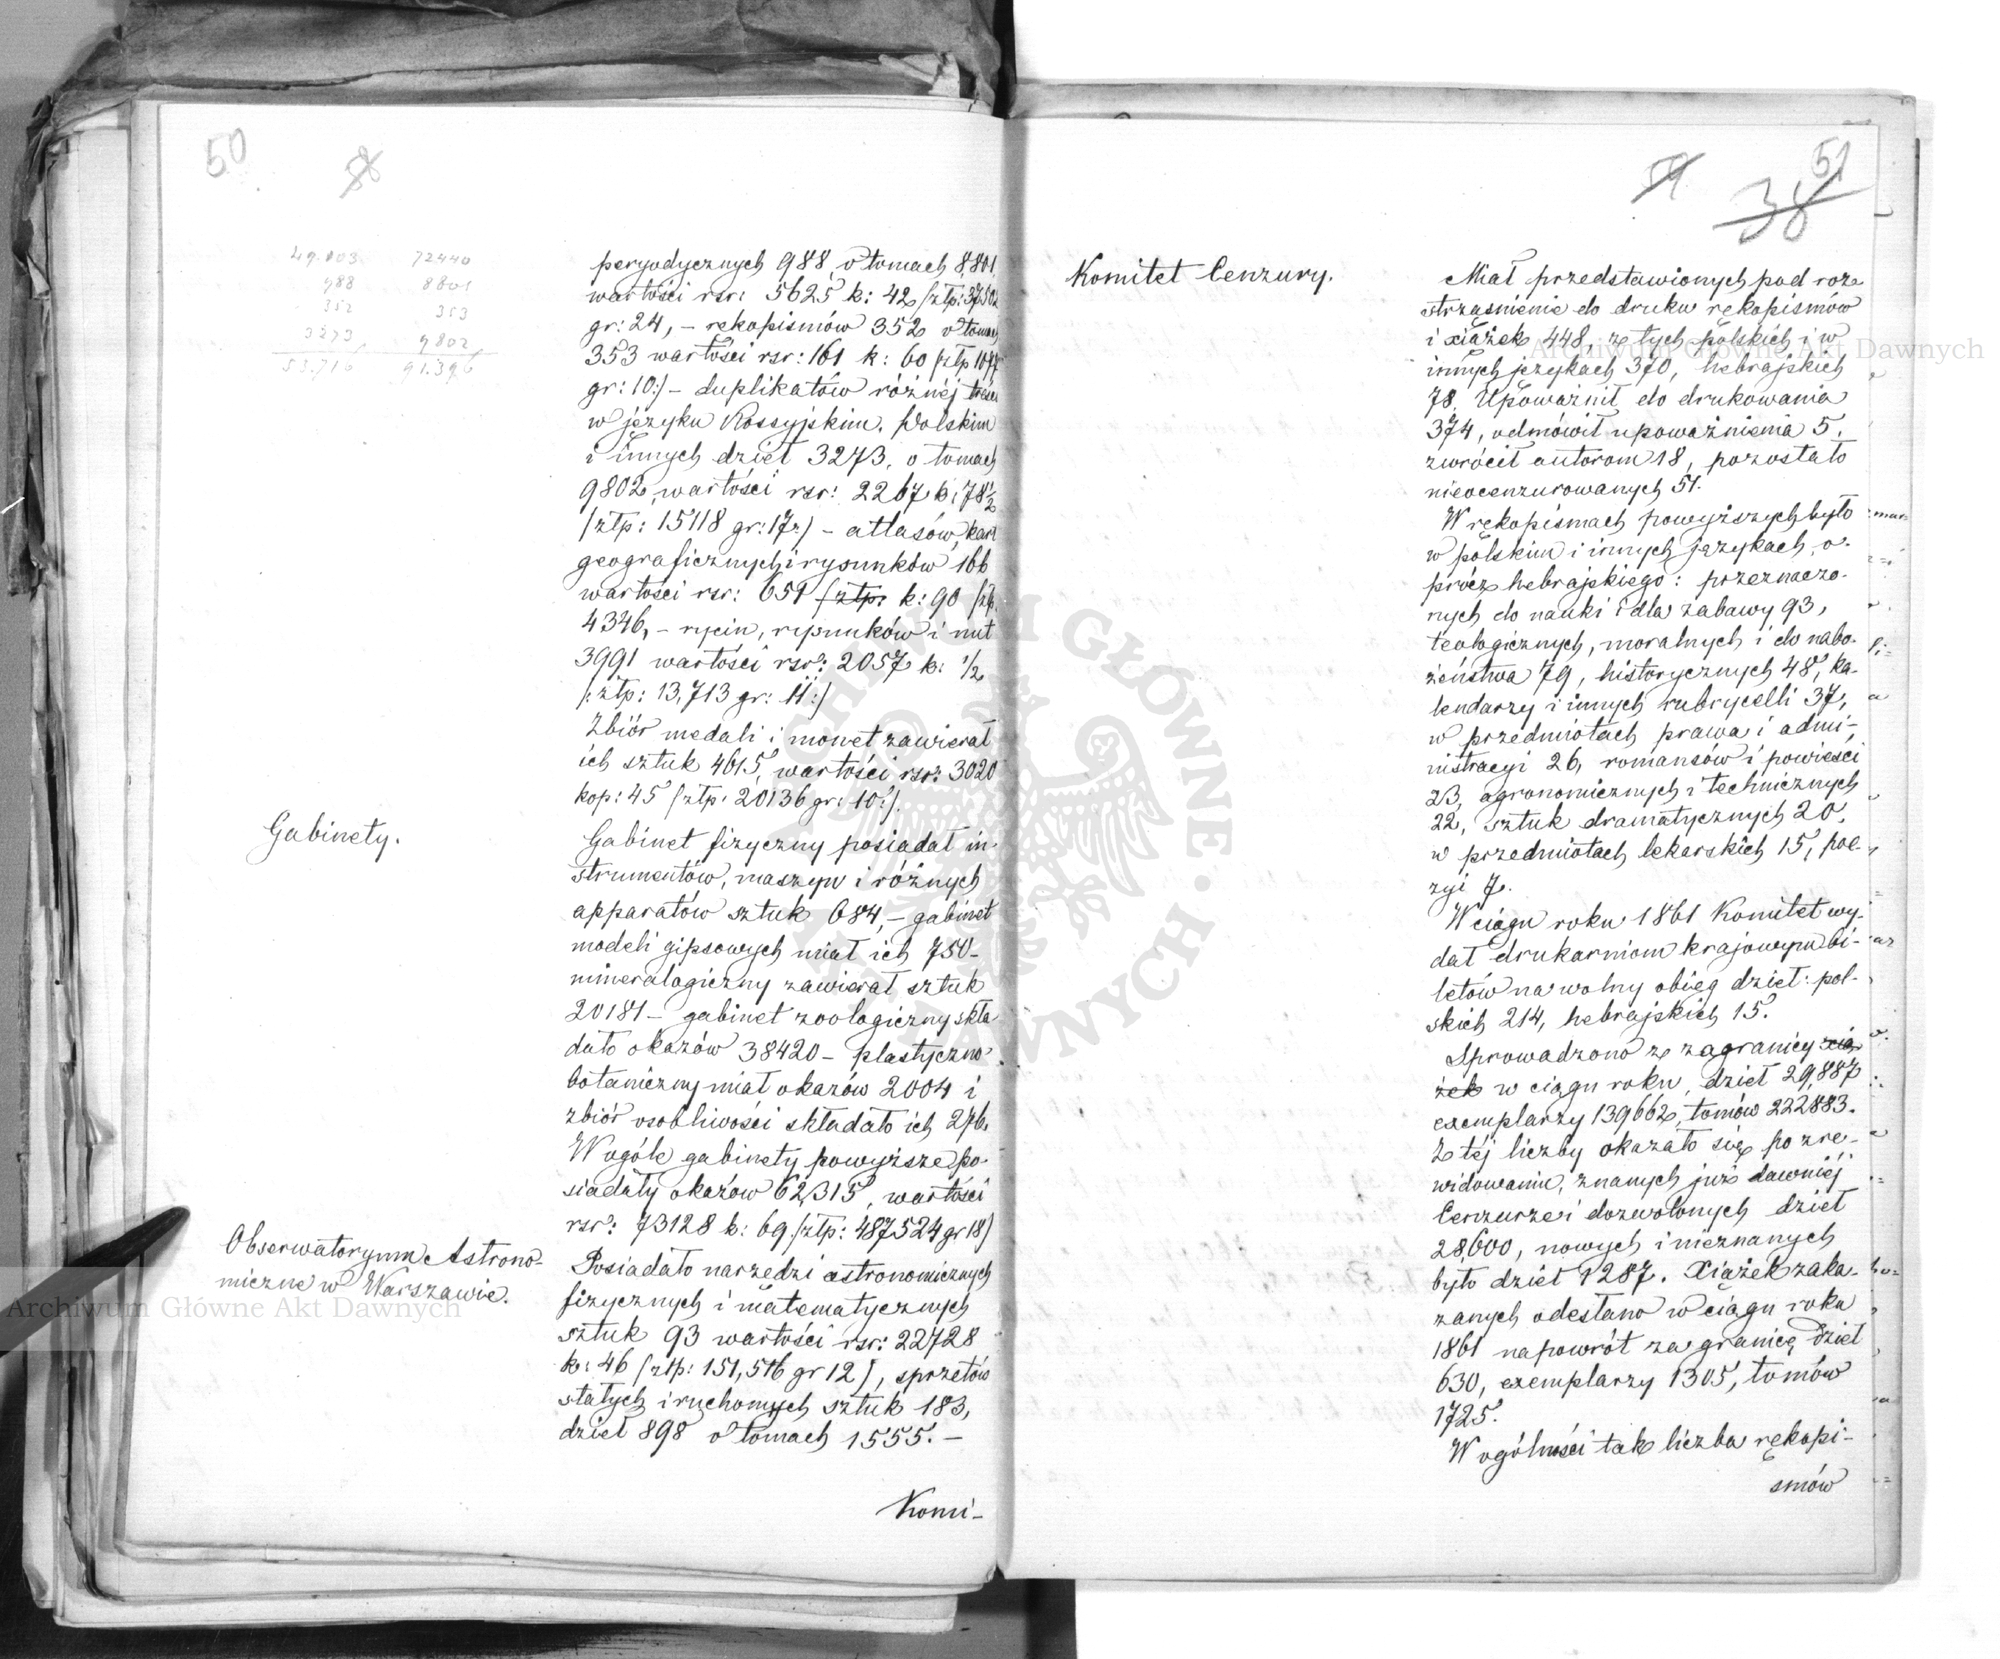 50
58
49.103 72440
988 8801
352 353
3273 9802
53.716 91.396
peryodycznych 988, o tomach 8,801,
wartości rsr: 5625 k: 42 /złp: 37502
gr: 24, – rękopismów 352 o tomach
353 wartości rsr: 161 k: 60 /złp 1077
gr: 10:/ – duplikatów różnéj treści
w języku Rossyjskim, Polskim
i innych dzieł 3273, o tomach
9802, wartości rsr: 2267 k: 78½
/złp: 15118 gr: 17:/ – atlasów, kart
geograficznych i rysunków 166
wartości rsr: 651 /złp: k: 90 /złp.
4346, – rycin, rysunków i nut
3991 wartości rsr: 2057 k: ½
/: złp: 13,713 gr: 11:/
Zbiór medali i monet zawierał
ich sztuk 4615, wartości rsr: 3020
kop: 45 /złp: 20136 gr: 10:/.
Gabinety.
Gabinet fizyczny posiadał in-
strumentów, maszyn i różnych
apparatów sztuk 684, – gabinet
modeli gipsowych miał ich 750 –
mineralogiczny zawierał sztuk
20181 – gabinet zoologiczny skła
dało okazów 38420 – plastyczno-
botaniczny miał okazów 2004 i
zbiór osobliwości składało ich 276.
W ogóle gabinety powyższe po-
siadały okazów 62,315, wartości
rsr: 73128 k: 69 /złp: 487524 gr 18/
Obserwatoryum Astrono-
miczne w Warszawie.
Posiadało narzędzi astronomicznych
fizycznych i matematycznych
sztuk 93 wartości rsr: 22728
k: 46 /złp: 151,516 gr 12/, sprzętów
stałych i ruchomych sztuk 183,
dzieł 898 o tomach 1555. –
Komi-
59
51
38
Komitet Cenzury.
Miał przedstawionych pod roz-
strząśnienie do druku rękopismów
i xiążek 448, z tych polskich i w
innych językach 370, hebrajskich
78. Upoważnił do drukowania
374, odmówił upoważnienia 5,
zwrócił autorom 18, pozostało
nieocenzurowanych 51.
W rękopismach powyższych było
w polskim i innych językach, o-
prócz hebrajskiego: przeznaczo-
nych do nauki i dla zabawy 93,
teologicznych, moralnych i do nabo-
żeństwa 79, historycznych 48, ka-
lendarzy i innych rubrycelli 37,
w przedmiotach prawa i admi-
nistracyi 26, romansów i powieści
23, agronomicznych i technicznych
22, sztuk dramatycznych 20,
w przedmiotach lekarskich 15, poe-
zyi 7.
W ciągu roku 1861 Komitet wy-
dał drukarniom krajowym bi-
letów na wolny obieg dzieł: pol-
skich 214, hebrajskich 15.
Sprowadzono z zagranicy xią
żek w ciągu roku, dzieł 29,887
exemplarzy 139662, tomów 222883.
Z téj liczby okazało się po zre-
widowaniu, znanych już dawniéj
Cenzurze i dozwolonych dzieł
28,600, nowych i nieznanych
było dzieł 1287. Xiążek zaka-
zanych odesłano w ciągu roku
1861 napowrót za granicę dzieł
630, exemplarzy 1305, tomów
1725.
W ogólności tak liczba rękopi-
smów
Archiwum Główne Akt Dawnych
Archiwum Główne Akt Dawnych
ARCHIWUM GŁÓWNE AKT DAWNYCH